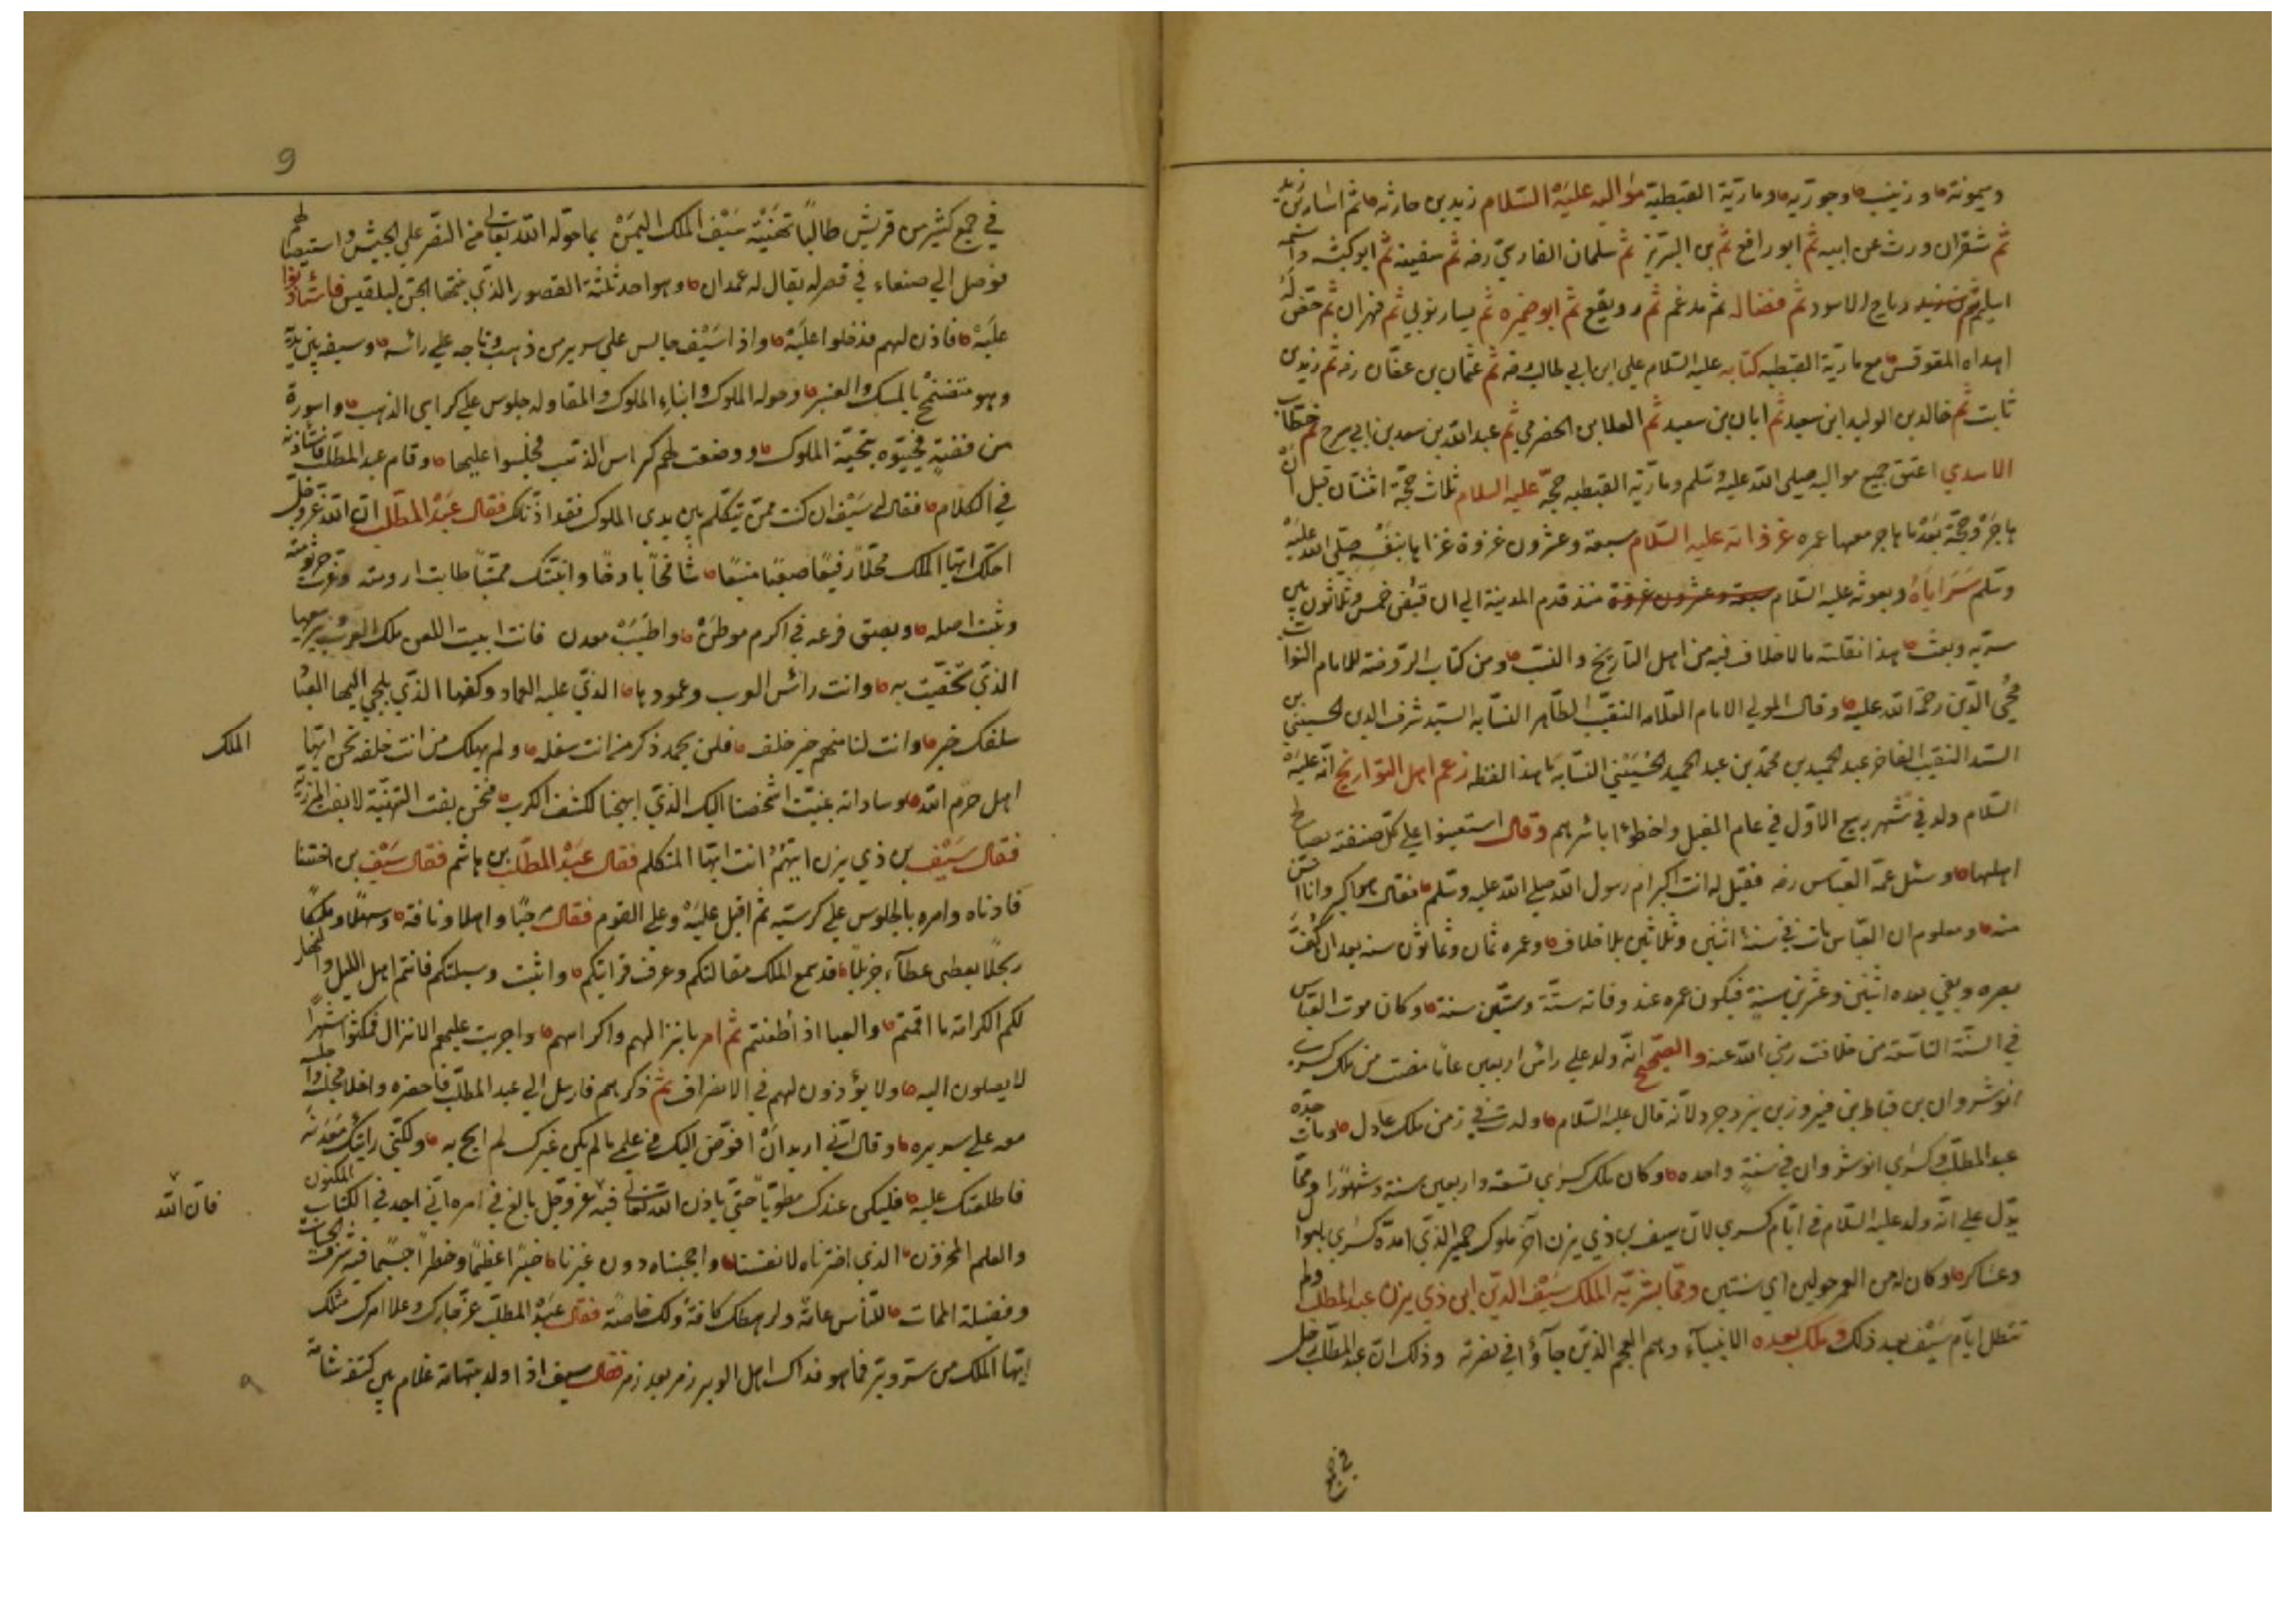 وميمونة وزينب وجويريه ومارية القبطية مواليه عليه السلام زيد بن حارثه ثم اسامه بن زيد
ثم شقران ورث عن ابيه ثم ابو رافع ثم سلمان الفارسي رضه ثم سفينه ثم ابو كبشه واسمه
رباح الاسود ثم فضاله ثم مدعم ثم رويفع ثم ابو ضميره ثم يسار نوبي ثم مهران ثم
اهداه المقوقس مع مارية القبطيه كتابه عليه السلام علي ابن ابي طالب رضه ثم عثمان بن عفان رضه ثم زيد بن
ثابت ثم خالد بن الوليد ابن سعيد ثم ابان بن سعيد ثم العلا بن الحضرمي ثم عبد الله بن سعد بن ابي سرح ثم
الاسدي اعتق جميع مواليه صلى الله عليه وسلم ومارية القبطيه حجه عليه السلام ثلاث حجة اثنتان قبل ان
هاجر وحجة بعد ما هاجر معها عمره غزواته عليه السلام سبعة وعشرون غزوة غزاها بنفسه صلى الله عليه
وسلم سراياه وبعوثه عليه السلام سبعة وعشرون غزوة منذ قدم المدينة الي ان قبض خمس وثلاثون بين
سريه وبعث هذا نقلته ما لا خلاف فيه من اهل التاريخ والنسب ومن كتاب الروضة للامام النواب
محي الدين رحمة الله عليه وقال المولي الامام العلامه النقيب الطاهر النسابه السيد شرف الدين الحسيني بن
السيد النقيب الفاخر عبد الحميد بن محمد بن عبد الحميد الحسيني النسابه بهذا اللفظ زعم اهل التواريخ انه عليه
السلام ولد في شهر ربيع الاول في عام الفيل واخطؤا باشرهم وقال استعينوا علي كل صنعة بصالح
اهلها وسئل عمه العباس رضه فقيل له انت اكبر ام رسول الله صلي الله عليه وسلم فقال هو اكبر وانا اسن
منه ومعلوم ان العباس مات في سنة اثنين وثلاثين بلا خلاف وعمره ثمان وثمانون سنه بعد ان كف
بصره وبقي بعده اثنين وعشرين سنة فيكون عمره عند وفاته ستة وستين سنة وكان موت العباس
في السنة التاسعة من خلافت رضي الله عنه والصحيح انه ولد علي رأس اربعين عاما مضت من ملك كسري
انوشروان بن قباط بن فيروز بن يزدجرد لانه قال عليه السلام ولدت في زمن ملك عادل ومات جده
عبد المطلب وكسري انوشروان في سنة واحده وكان ملك كسري تسعة واربعين سنة وشهورا ومما
يدل علي انه ولد عليه السلام في ايام كسري لان سيف بن ذي يزن اخر ملوك حمير الذي امده كسري باموال
وعساكر وكان له من العمر حولين اي سنتين ومما بشر به الملك سيف الدين ابن ذي يزن عبد المطلب ولم
تتطل ايام سيف بعد ذلك وملك بعده الانبياء وهم العجم الذين جآؤا في نصرته وذلك ان عبد المطلب دخل
في جمع
9
في جمع كثير من قريش طالبا تهنية سيف الملك اليمن بما خوله الله تعالى من النصر علي الجيش واستيصالهم
فوصل الي صنعاء في قصر له يقال له غمدان وهو احد ثلثة القصور الذي بنتها الجن لبلقيس فاستأذنوا
عليه فاذن لهم فدخلوا عليه واذا سيف جالس علي سرير من ذهب وتاجه علي رأسه وسيفه بين يديه
وهو متضمخ بالمسك والعنبر وحوله الملوك وابناء الملوك والمقاوله جلوس علي كراسي الذهب واسورة
من فضة فحيوه بتحية الملوك ووضعت لهم كراسي الذهب فجلسوا عليها وقام عبد المطلب فاستأذنه
في الكلام فقال له سيف ان كنت ممن يتكلم بين يدي الملوك فقد اذنا لك فقال عبد المطلب ان الله عز وجل
احلك ايها الملك محلا رفيعا صعبا منيعا شامخا باذخا وانبتك منبتا طابت ارومته وعزت جرثومته
وثبت اصله وبسق فرعه في اكرم موطن واطيب معدن فانت ابيت اللعن ملك العرب وربيعها
الذي تخصب به وانت رأس العرب وعمودها الذي عليه العماد وكهفها الذي يلجي اليها العباد
سلفك خير وانت لنا منهم خير خلف فلن يخمد ذكر من انت سلفه ولم يهلك من انت خلفه نحن ايها
الملك
اهل حرم الله وسادانه بيت اشخصنا اليك الذي ابهجنا لكشف الكرب فنحن وفد التهنية لا وفد المرزية
فقال سيف بن ذي يزن ايهم انت ايها المتكلم فقال عبد المطلب بن هاشم فقال سيف بن اختنا
فادناه وامره بالجلوس علي كرسيه ثم اقبل عليه وعلي القوم فقال مرحبا واهلا وناقة وسهلا وملكا
ربحلا يعطي عطآء جزيلا قد سمع الملك مقالتكم وعرف قرابتكم واثبت وسيلتكم فانتم اهل الليل والنهار
لكم الكرامة ما اقمتم والحبا اذا ظعنتم ثم امر بانزالهم واكرامهم واجريت عليهم الانزال فمكثوا شهرا
لا يصلون اليه ولا يؤذون لهم في الانصراف ثم ذكرهم فارسل الي عبد المطلب فاحضره واخلا مجلسه واجلسه
معه علي سريره وقال اني اريد ان افوض اليك من علمي ما لم يكن غيرك لم ابح به ولكني رايتك معدنه
فاطلعتك عليه فليكن عندك مطويا حتي ياذن الله تعالي فيه عز وجل بالغ في امره اني اجد في الكتاب المكنون
فان الله
والعلم المخزون الذي اخترناه لانفسنا واحجبناه دون غيرنا خبرا عظيما وخطرا جسيما فيه شرف الحيات
وفضيلة الممات للناس عامة ولرهطك كافة ولك خاصة فقال عبد المطلب عز جارك وعلا امرك مثلك
ايها الملك من ستر وبر فما هو فداك اهل الوبر زمر بعد زمر فقال سيف اذا ولد بتهامة غلام بين كتفه شامة
٩